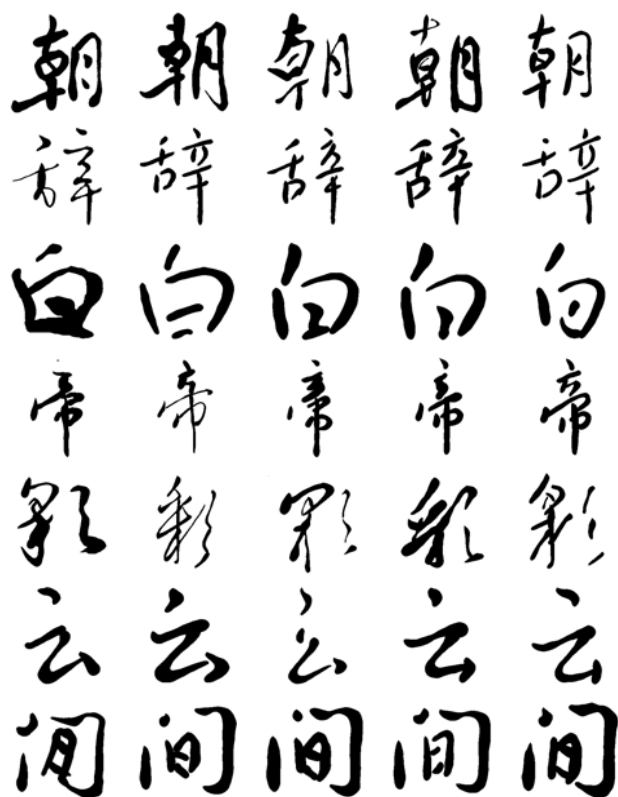 朝朝朝朝朝
辞辞辞辞辞
白白白白白
帝帝帝帝帝
彩彩彩彩彩
云云云云云
间间间间间